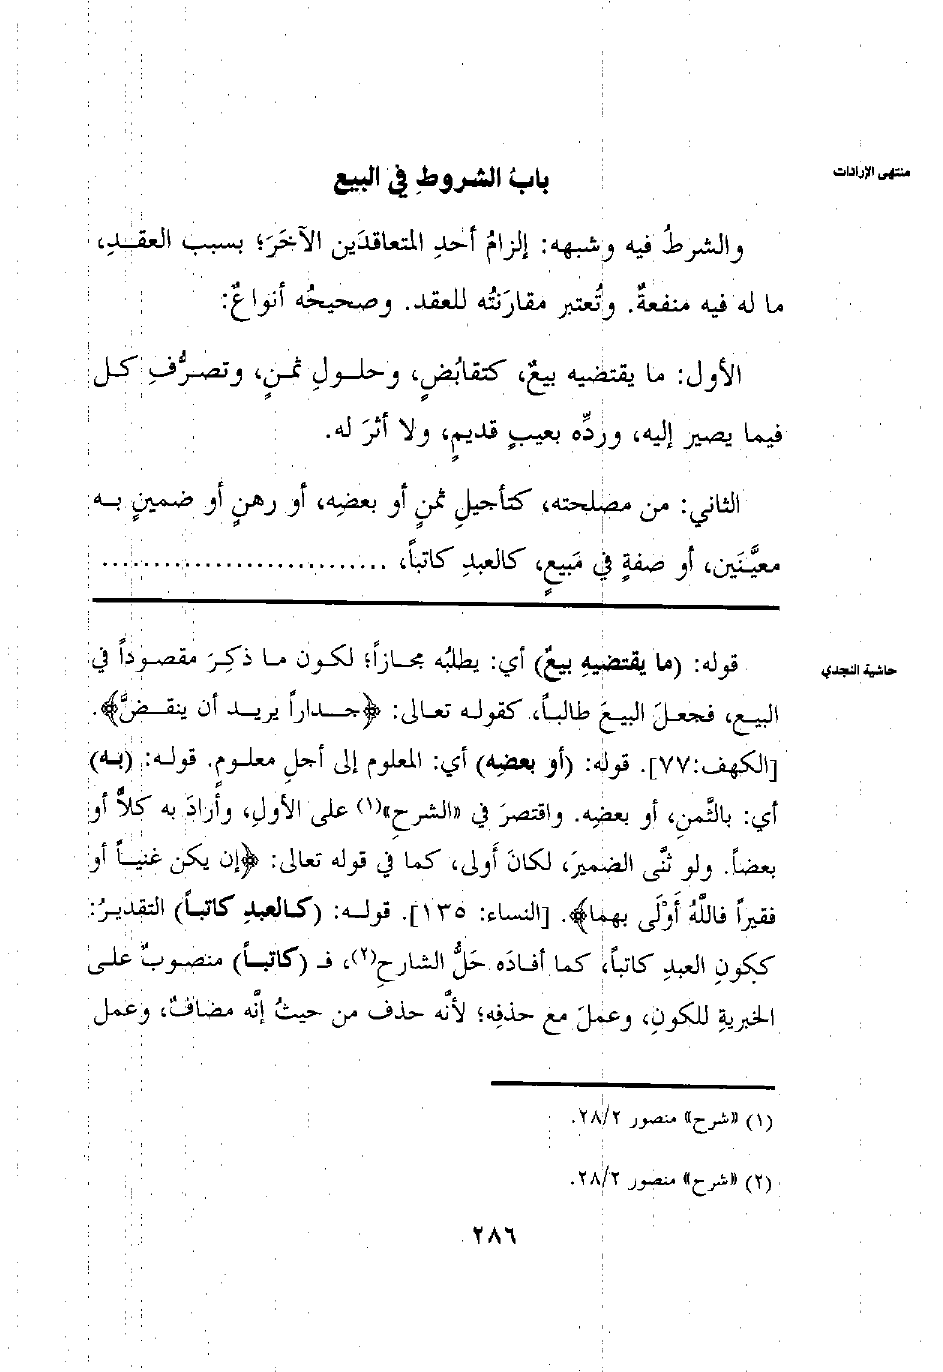 منتهى الإرادات
بابُ الشروطِ في البيع
والشرطُ فيه وشبهه: إلزامُ أحدِ المتعاقدَين الآخَرَ؛ بسبب العقـدِ،
ما له فيه منفعةٌ. وتُعتبر مقارَنتُه للعقد. وصحيحُه أنواعٌ:
الأول: ما يقتضيه بيعٌ، كتقابُضٍ، وحلـولِ ثمـنٍ، وتصـرُّفِ كـل
فيما يصير إليه، وردِّه بعيبٍ قديمٍ، ولا أثرَ له.
الثاني: من مصلحته، كتأجيلِ ثمنٍ أو بعضِه، أو رهنٍ أو ضمينٍ بـه
معيَّنَين، أو صفةٍ في مَبيعٍ، كالعبدِ كاتباً، ............................
حاشية النجدي
قوله: (ما يقتضيهِ بيعٌ) أي: يطلبُه مجـازاً؛ لكـون مـا ذكِـرَ مقصـوداً في
البيـع، فجعـلَ البيـعَ طالبـاً، كقولـه تعـالى: ﴿جـداراً يريـد أن ينقـضَّ﴾.
[الكهف:٧٧]. قولُه: (أو بعضِه) أي: المعلوم إلى أجلٍ معلـومٍ. قولـه: (بـه)
أي: بالثَّمنِ، أو بعضِه. واقتصرَ في «الشرحِ»(١) على الأولِ، وأرادَ به كلاًّ أو
بعضاً. ولو ثنَّى الضميرَ، لكانَ أَولى، كما في قوله تعالى: ﴿إن يكن غنيـاً أو
فقيراً فاللَّهُ أَوْلَى بهما﴾. [النساء: ١٣٥]. قولـه: (كـالعبدِ كاتبـاً) التقديرُ:
ككونِ العبدِ كاتباً، كما أفادَه حَلُّ الشارحِ(٢)، فـ (كاتبـاً) منصـوبٌ علـى
الخبريةِ للكونِ، وعملَ مع حذفِه؛ لأنَّه حذف من حيثُ إنَّه مضافٌ، وعمل
(١) «شرح» منصور ٢٨/٢.
(٢) «شرح» منصور ٢٨/٢.
٢٨٦